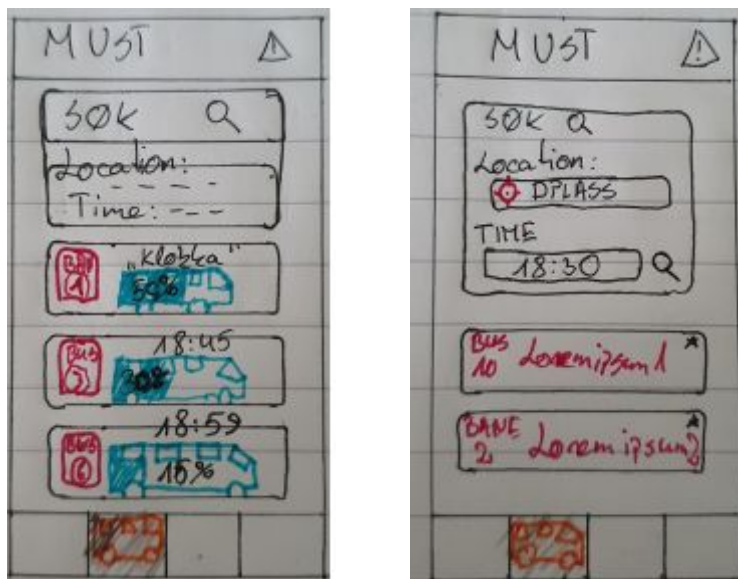 MUST
SØK
Location:
Time:
"Klokka"
BUS
59%
18:45
BUS
30%
18:59
BUS
6
15%
MUST
SØK
Location:
DPLASS
TIME
18:30
BUS
10 Lorem ipsum 1
BANE
2 Lorem ipsum 2